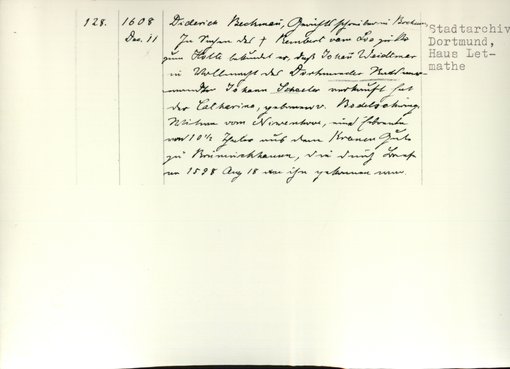 128. 1608 Dec. 11
Diderich Beckman, Gerichtsschreiber in Bochum,
In Sachen des † Rembert vom Loe
zum bekundet er, daß Johan Weidtmar
in Vollmacht des Dortmunder
Johann Schaefer verkauft hat
der Catharina, geborene v. Bodelschwing,
Witwe vom Nivenhove, eine Erbrente
von 10½ Thaler aus dem Kranen Gute
zu die durch Kauf
an 1598 Aug 18 an ihn gekommen war.
Stadtarchiv
Dortmund,
Haus Let-
mathe